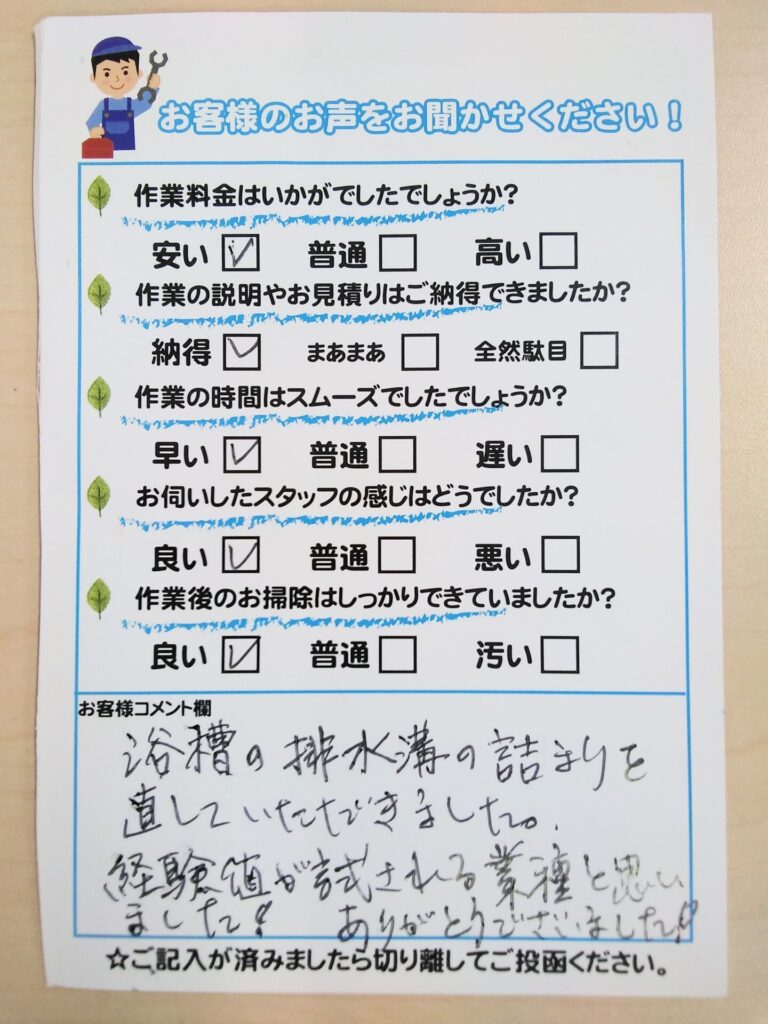 お客様のお声をお聞かせください！
作業料金はいかがでしたでしょうか？
安い☑ 普通□ 高い□
作業の説明やお見積りはご納得できましたか？
納得☑ まあまあ□ 全然駄目□
作業の時間はスムーズでしたでしょうか？
早い☑ 普通□ 遅い□
お伺いしたスタッフの感じはどうでしたか？
良い☑ 普通□ 悪い□
作業後のお掃除はしっかりできていましたか？
良い☑ 普通□ 汚い□
お客様コメント欄
浴槽の排水溝の詰まりを
直していただきました。
経験値が試される業種と思い
ました！ ありがとうございました！
☆ご記入が済みましたら切り離してご投函ください。